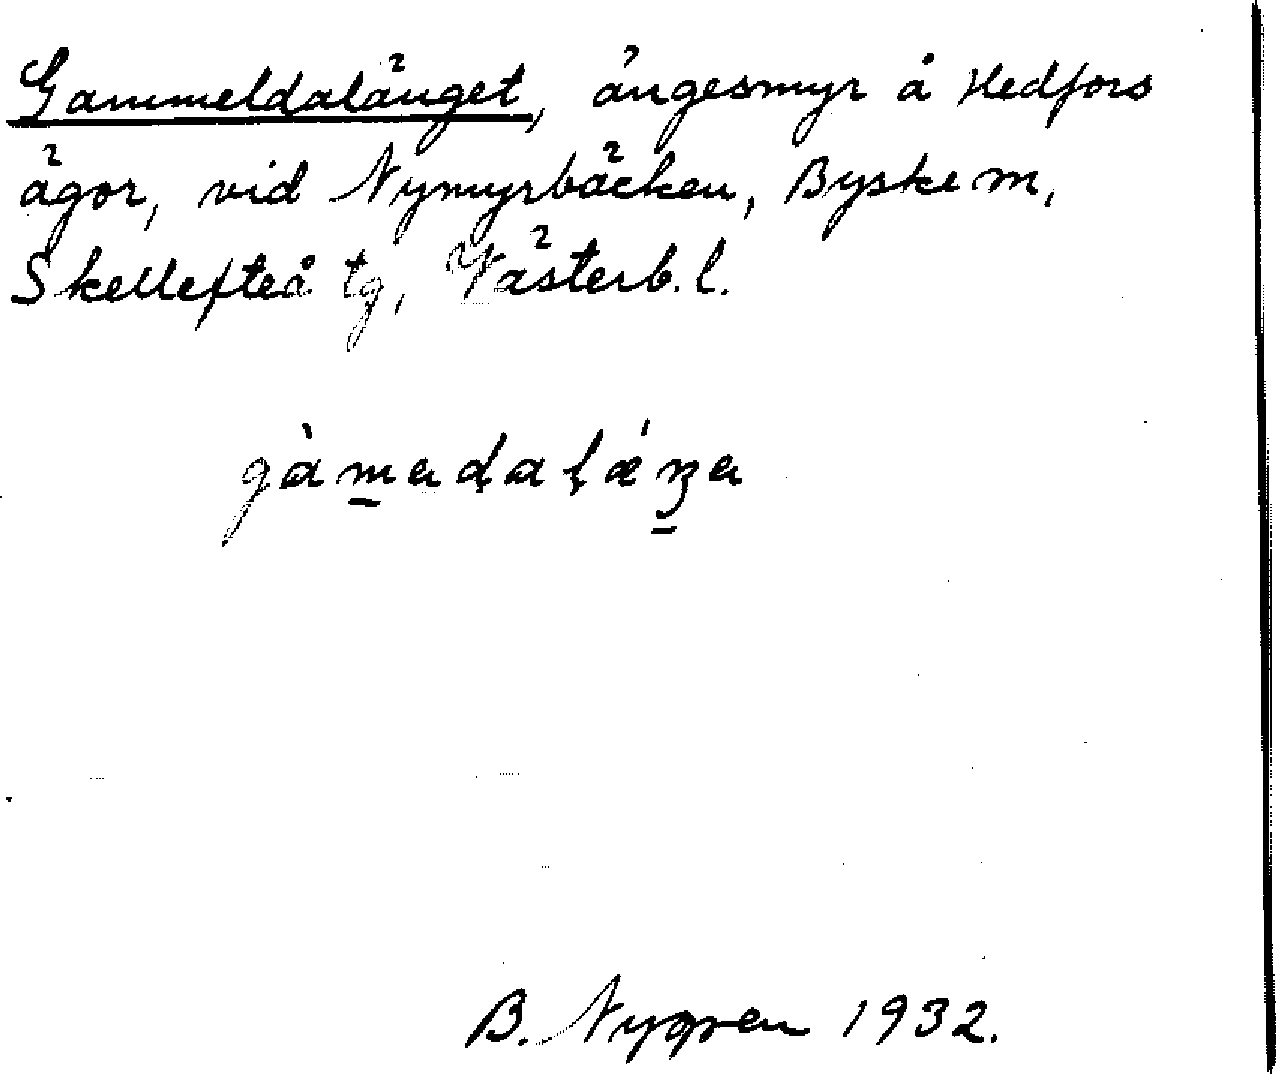 Gammeldalänget, ängesmyr å Hedfors
ägor, vid Nymyrbäcken, Byske m,
Skellefteå tg, Västerb. l.
gàmadalǽŋa
B. Nygren 1932.